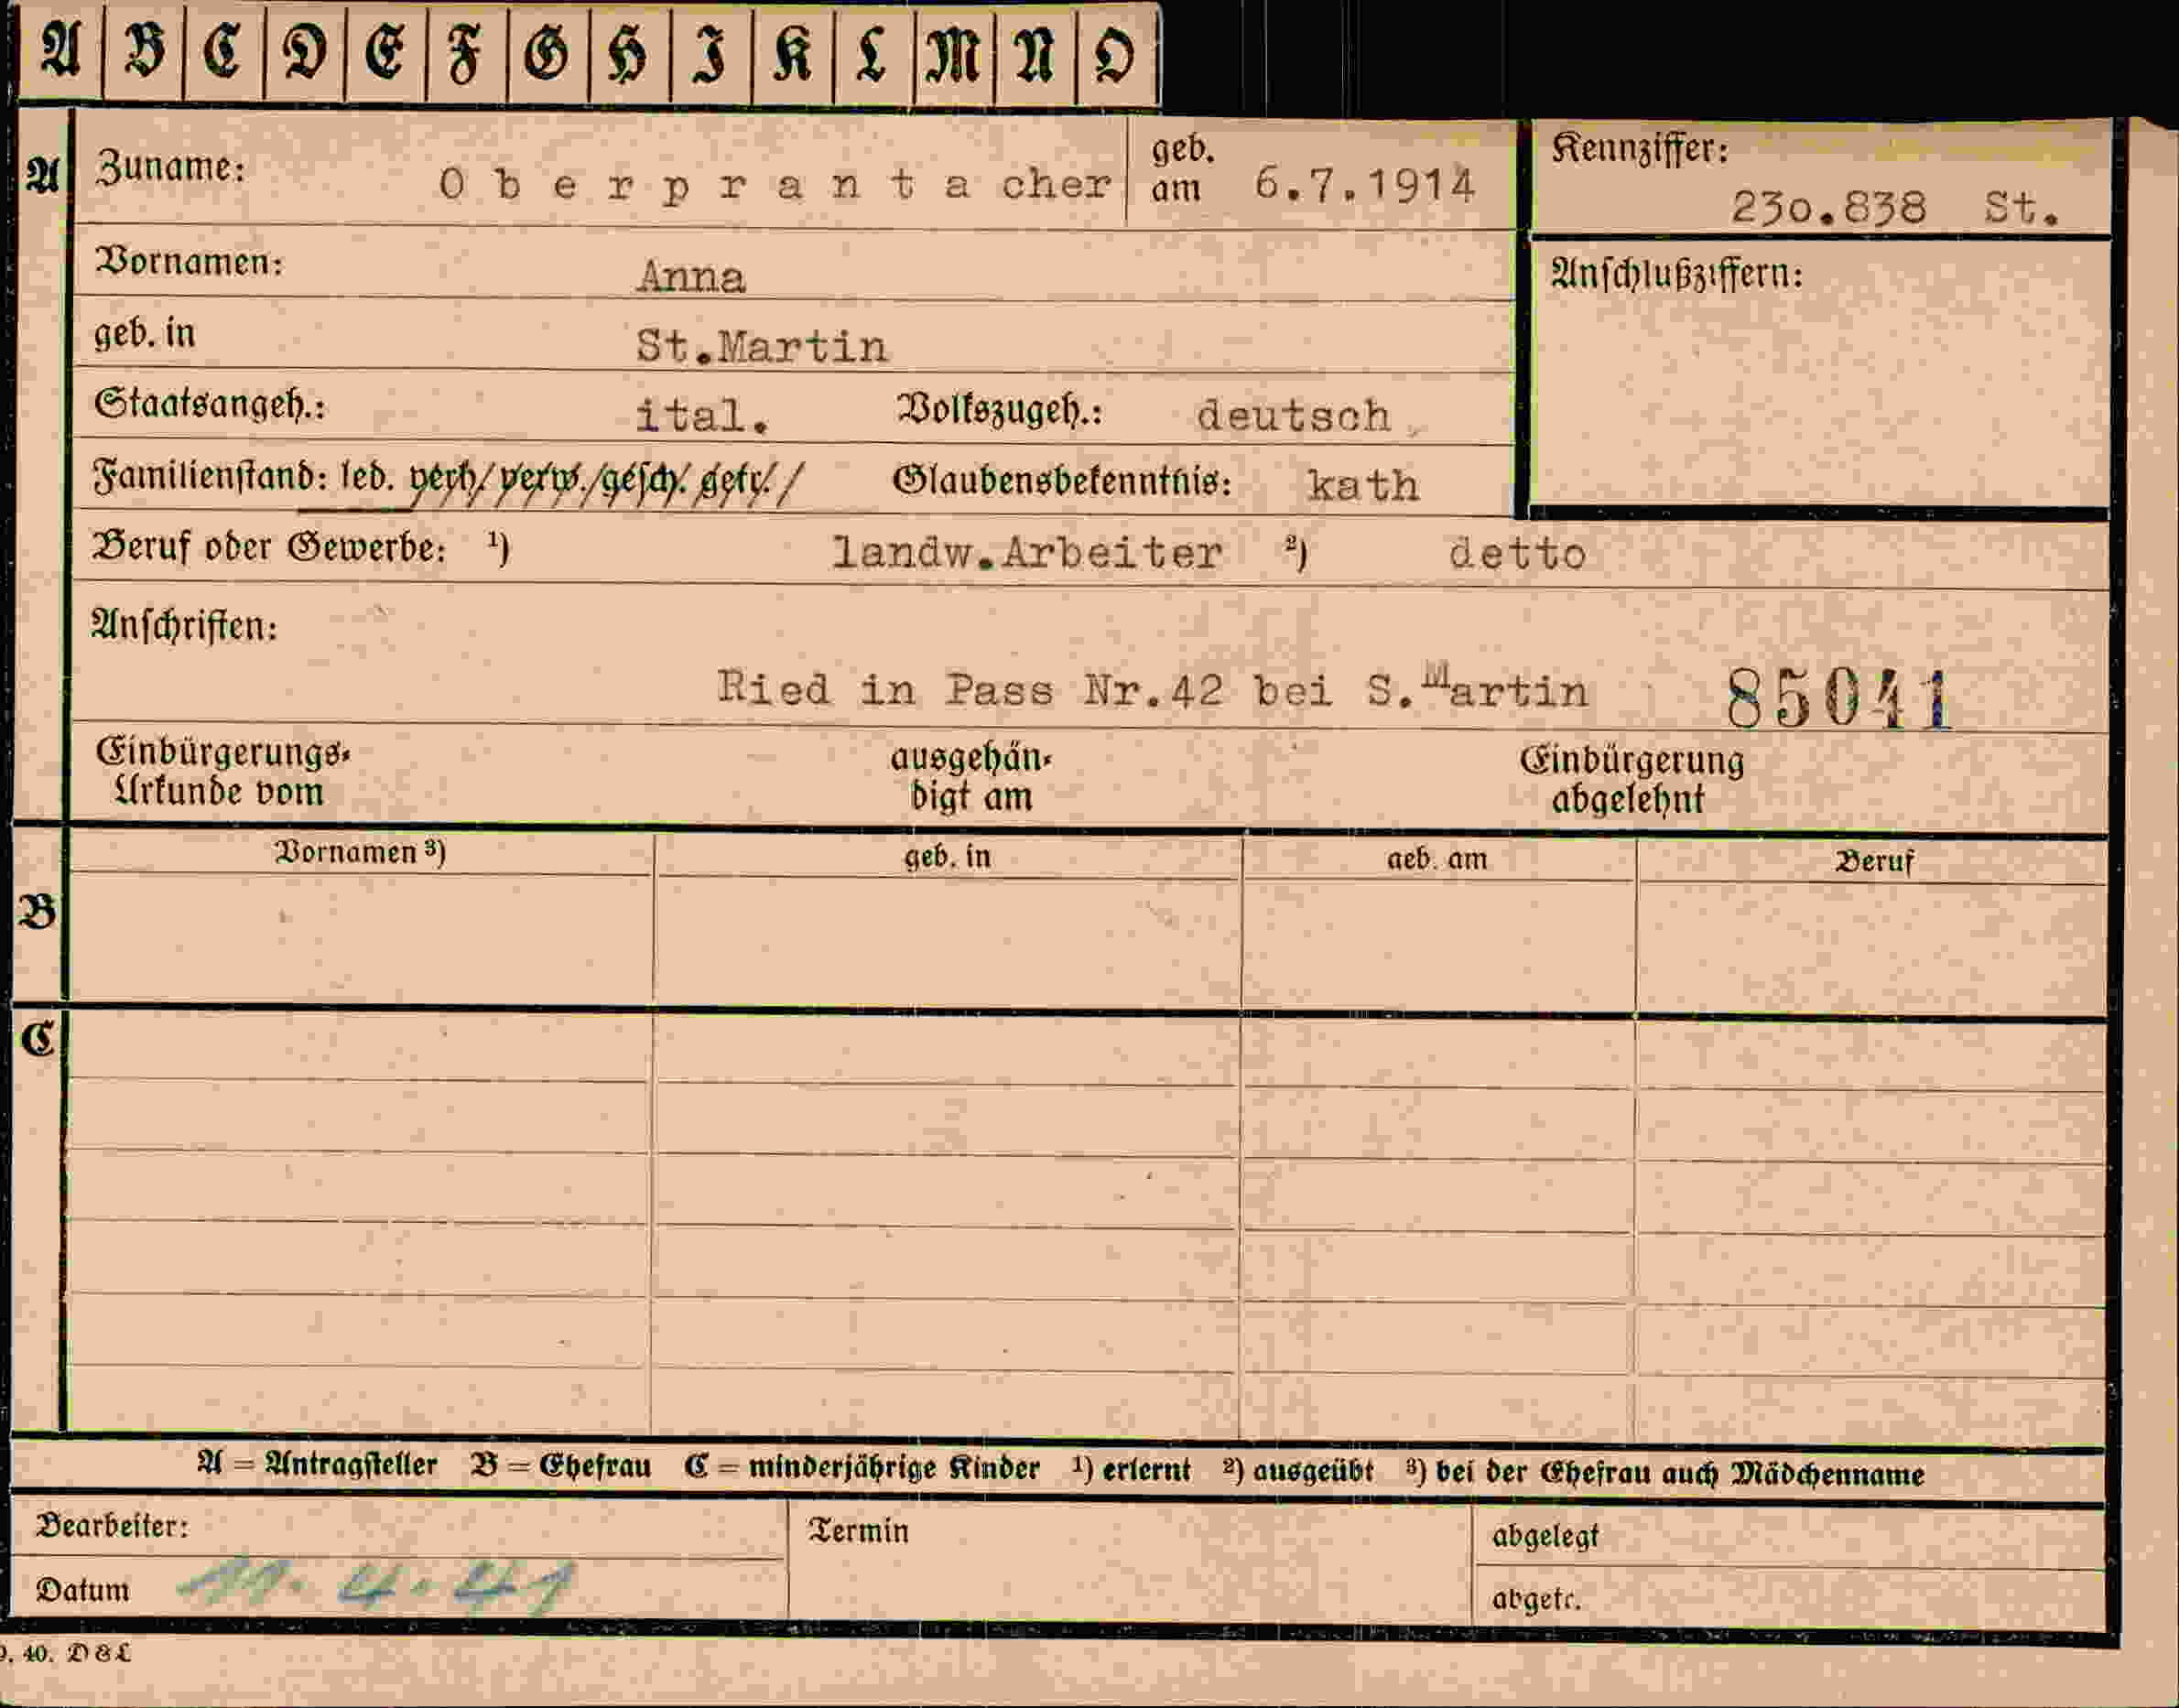 A B C D E F G H I K L M N O
A Zuname: Oberprantacher geb. am 6.7.1914 Kennziffer: 230.838 St.
Vornamen: Anna Anschlußziffern:
geb. in St.Martin
Staatsangeh.: ital. Volkszugeh.: deutsch
Familienstand: led. verh/verw./gesch. getr./ Glaubensbekenntnis: kath
Beruf oder Gewerbe: ¹) landw.Arbeiter ²) detto
Anschriften:
Ried in Pass Nr.42 bei S.Martin 85041
Einbürgerungs- ausgehän- Einbürgerung
Urkunde vom digt am abgelehnt
Vornamen ³) geb. in geb. am Beruf
B
C
A = Antragsteller B = Ehefrau C = minderjährige Kinder ¹) erlernt ²) ausgeübt ³) bei der Ehefrau auch Mädchenname
Bearbeiter: Termin abgelegt
Datum 11. 4. 41 abgetr.
40. D&L